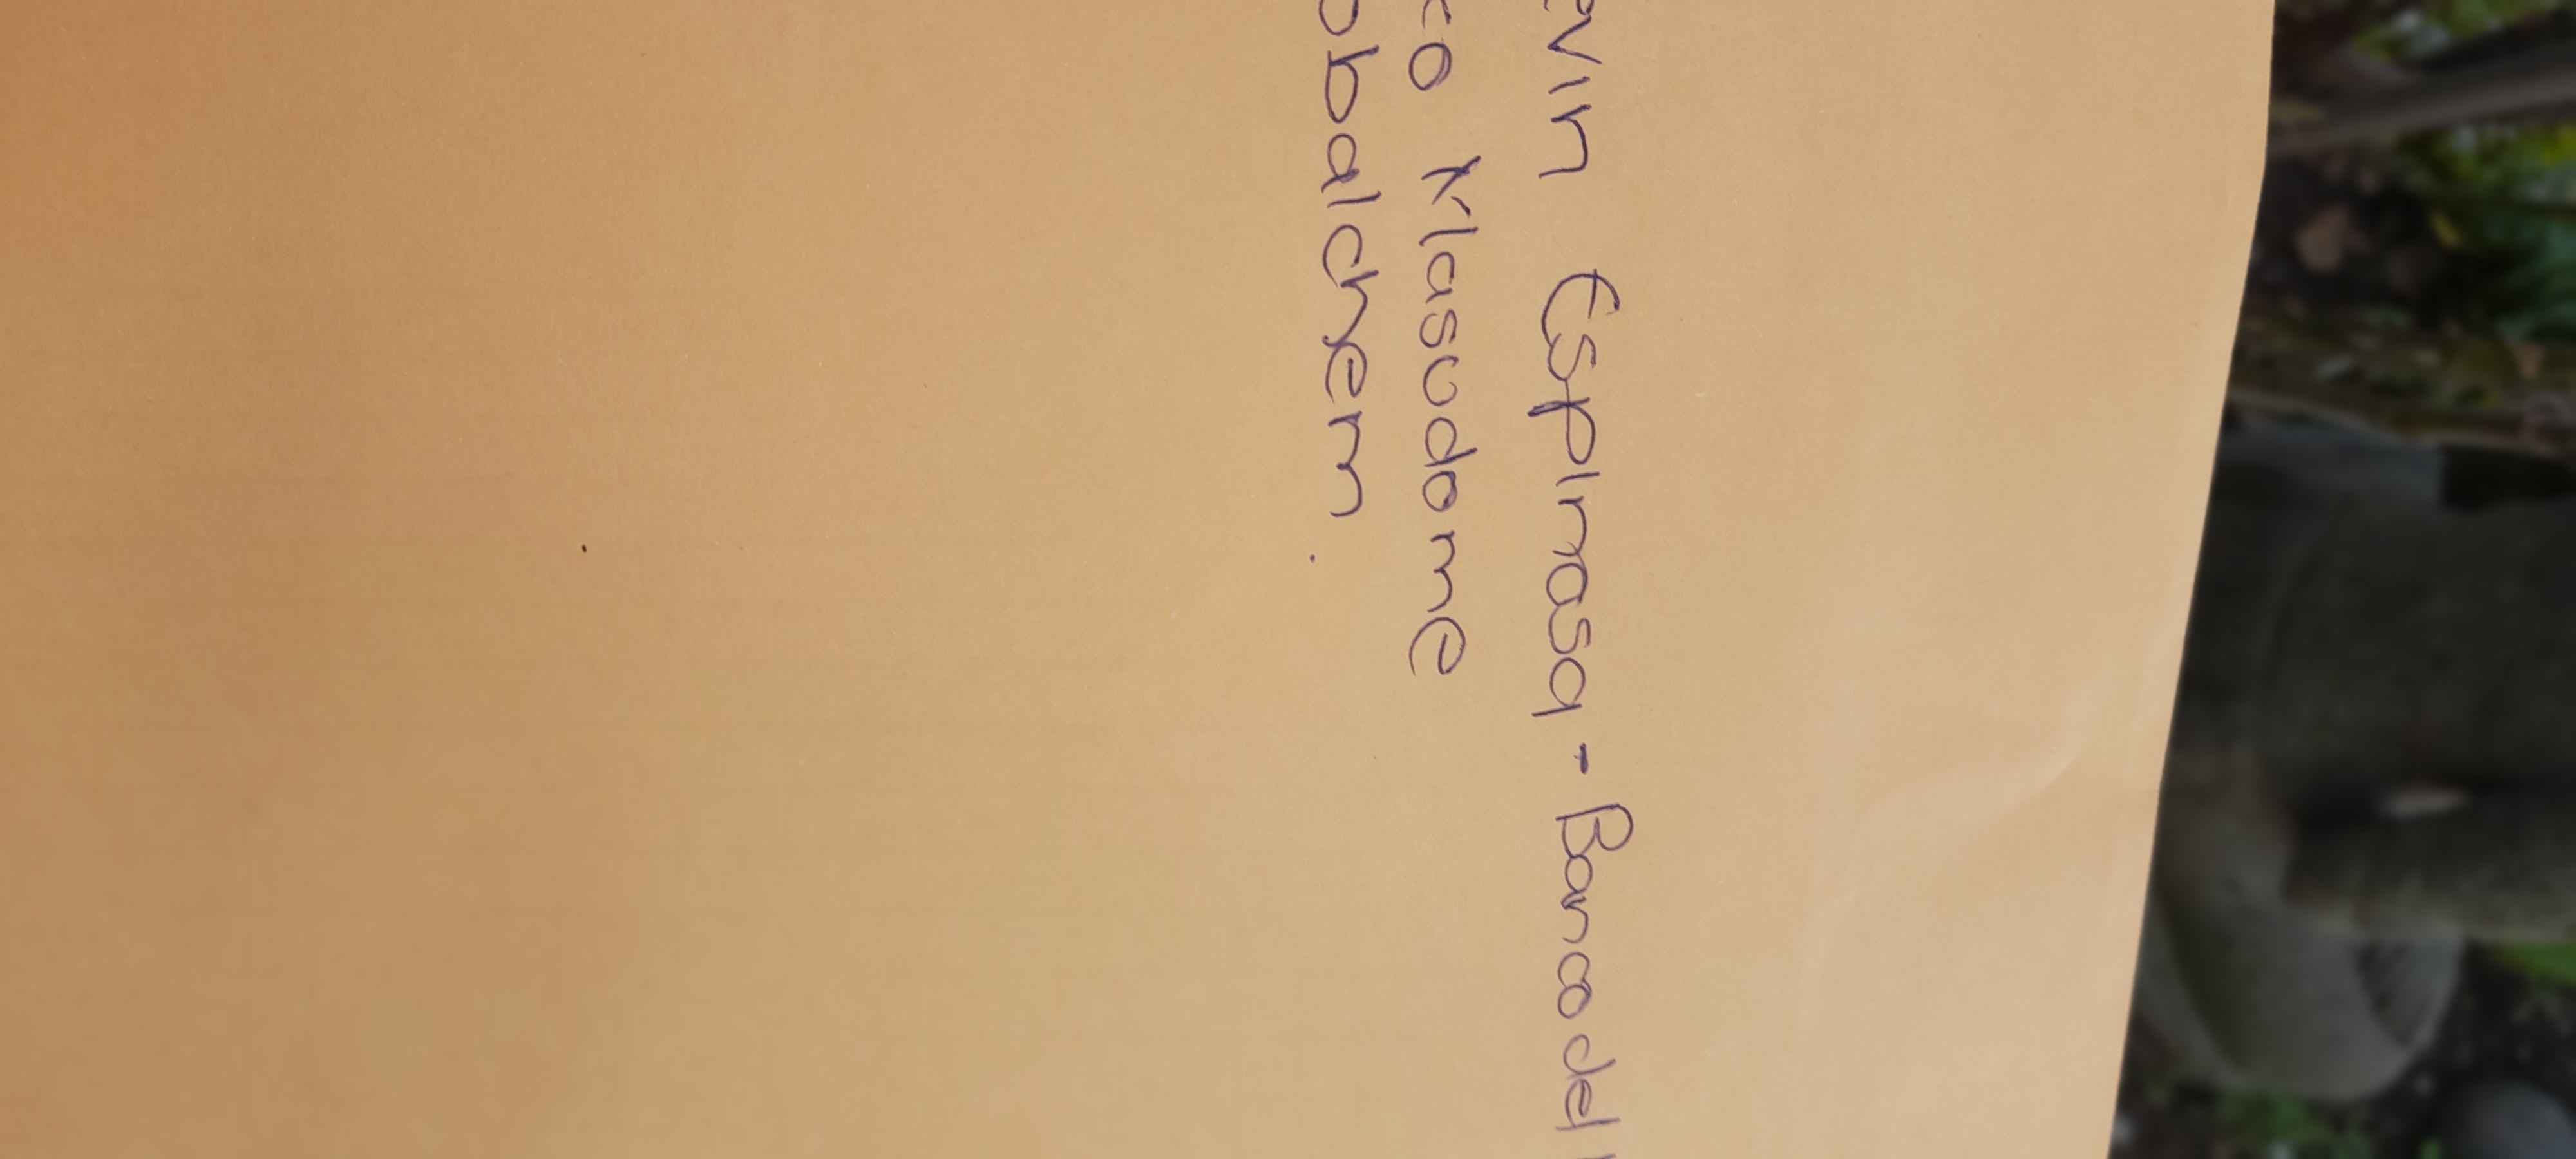 evin Espinosa - Banco del
co Klasudome
obalchem.